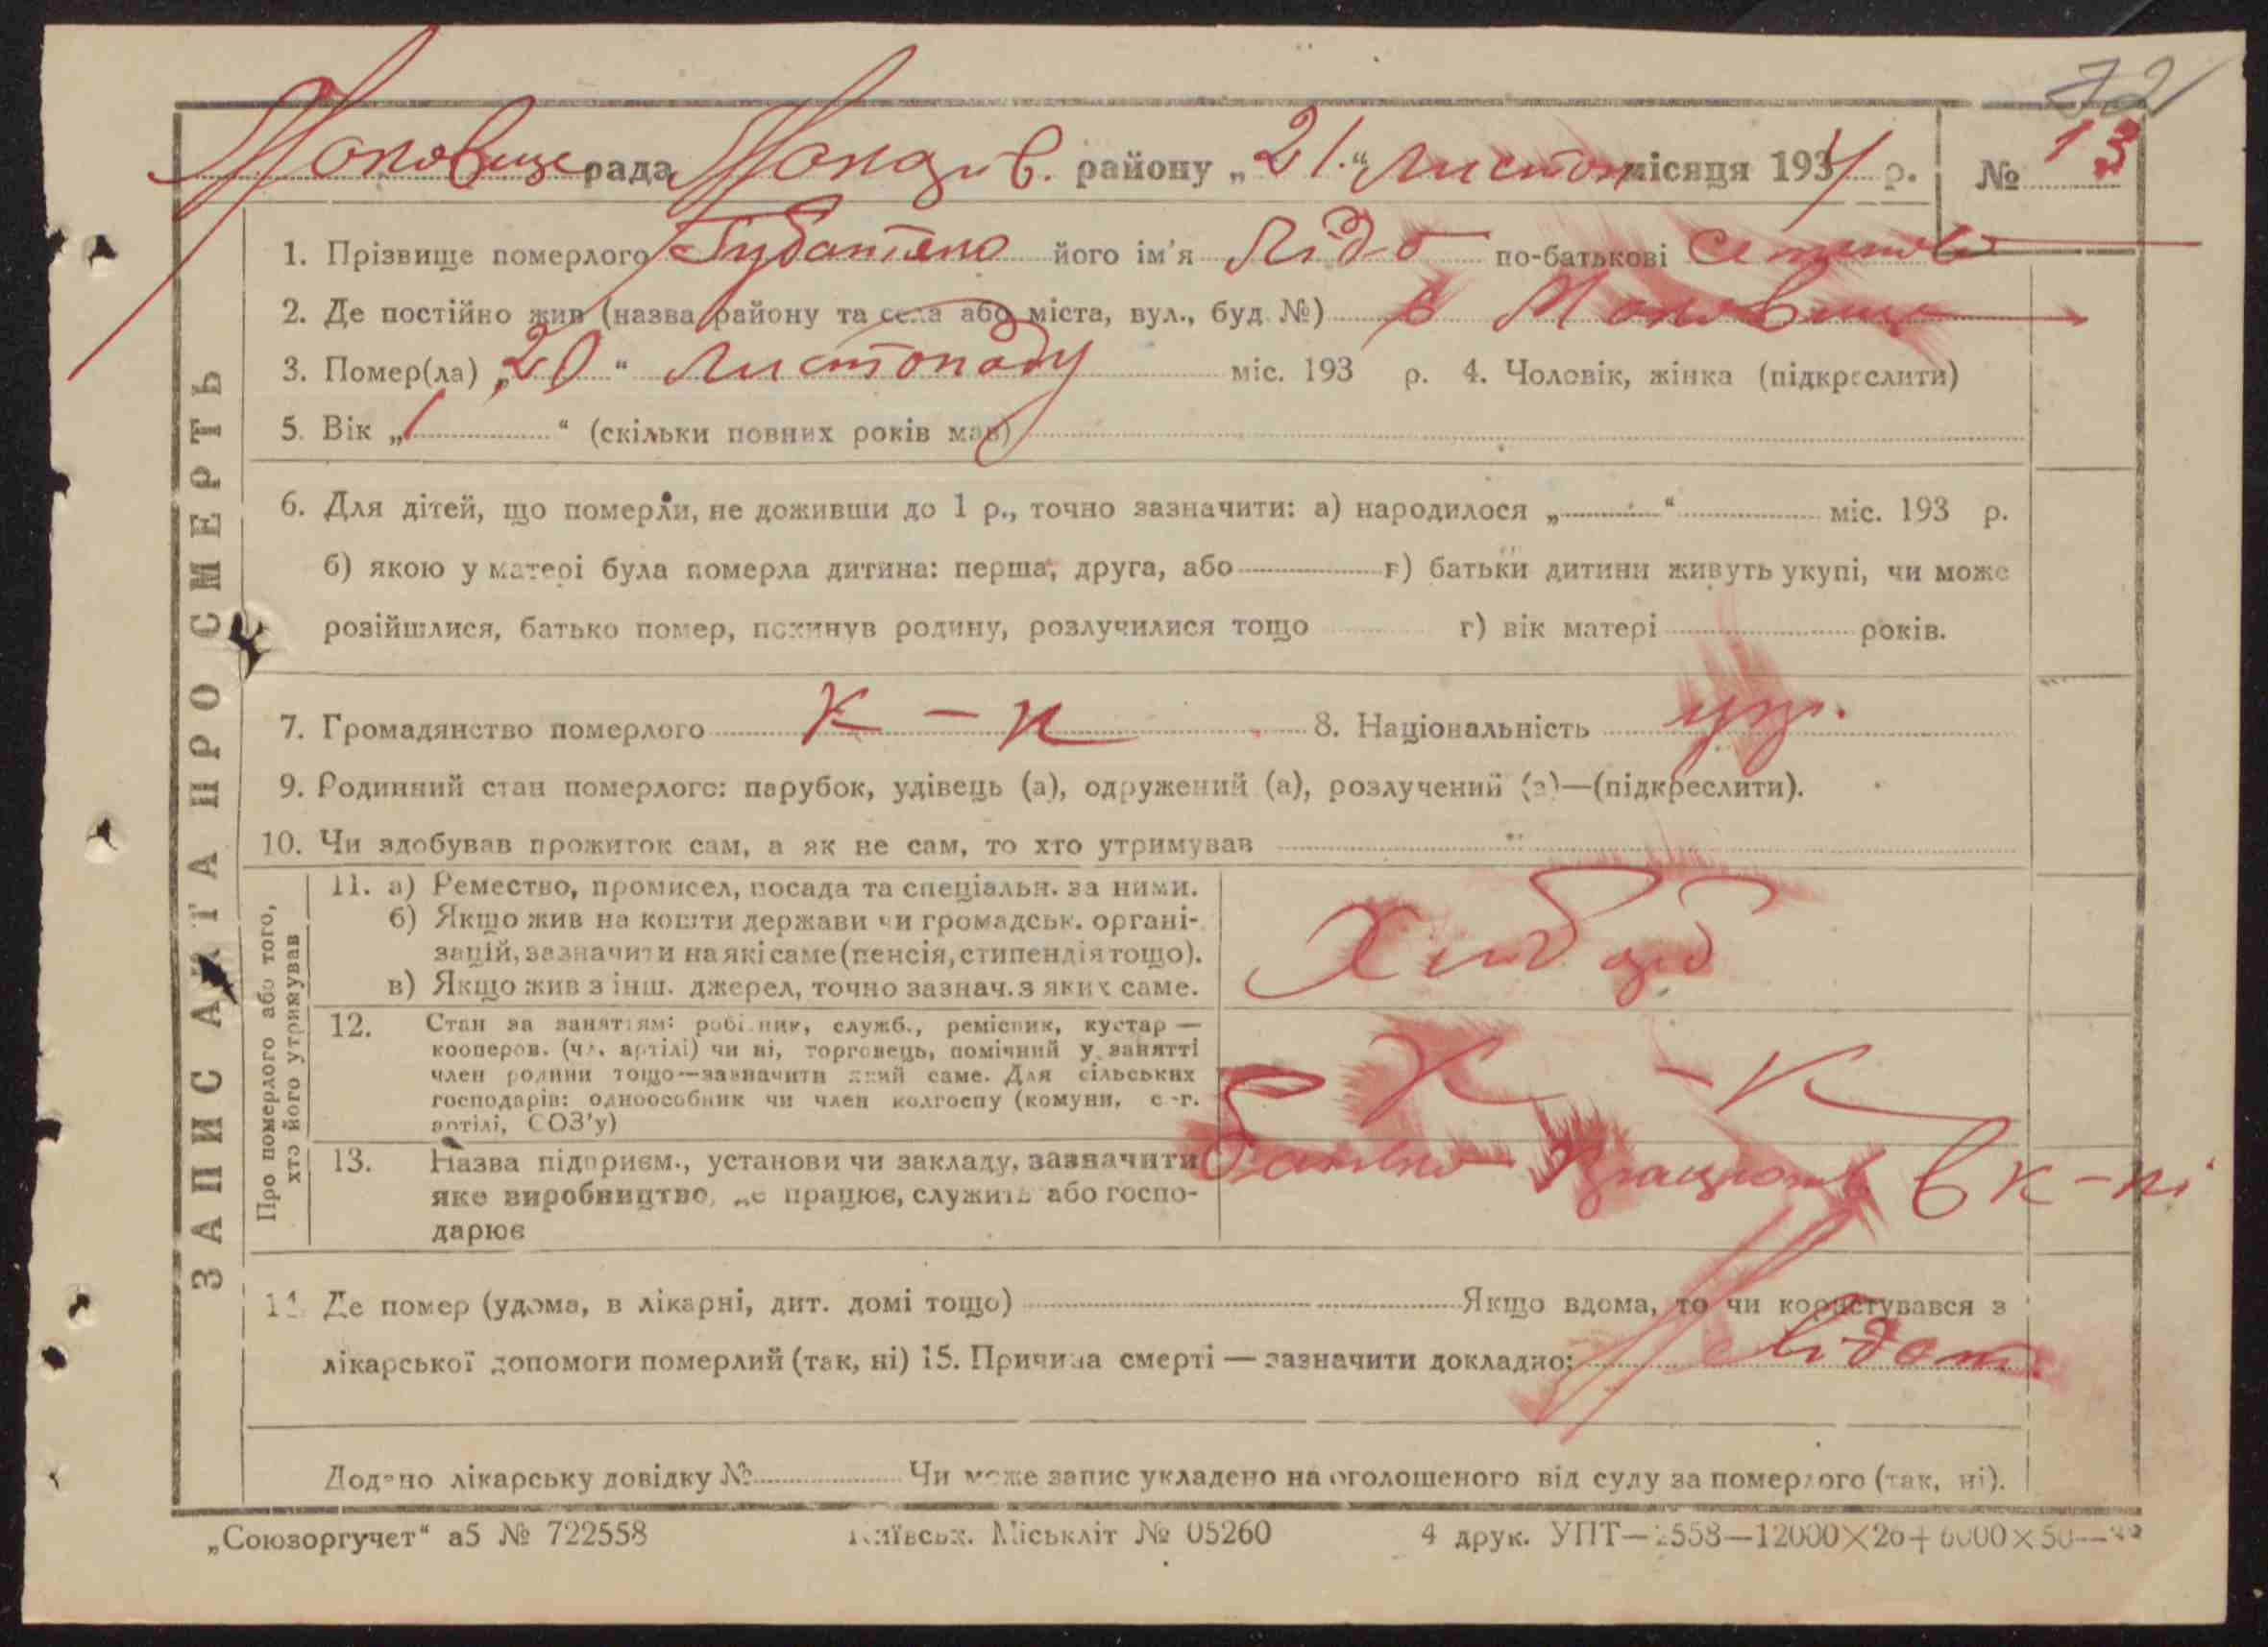 72
рада району „21.“ Листоп місяця 1934 р. № 13
1. Прізвище померлого його ім'я Лідо по-батькові
2. Де постійно жив (назва району та села або міста, вул., буд №) в
3. Помер(ла) „20“ Листопаду міс. 193 р. 4. Чоловік, жінка (підкреслити)
5. Вік „1“ (скільки повних років мав)
6. Для дітей, що померли, не доживши до 1 р., точно зазначити: а) народилося „ “ міс. 193 р.
б) якою у матері була померла дитина: перша, друга, або в) батьки дитини живуть укупі, чи може
розійшлися, батько помер, покинув родину, розлучилися тощо г) вік матері років.
7. Громадянство померлого к – к 8. Національність укр.
9. Родинний стан померлого: парубок, удівець (а), одружений (а), розлучений (а)—(підкреслити).
10. Чи здобував прожиток сам, а як не сам, то хто утримував
ЗАПИС АКТА ПРО СМЕРТЬ
Про померлого або того,
хто його утримував
11. а) Ремество, промисел, посада та спеціальн. за ними.
б) Якщо жив на кошти держави чи громадськ. органі-
зацій, зазначити на які саме (пенсія, стипендія тощо).
в) Якщо жив з інш. джерел, точно зазнач. з яких саме.
12. Стан за заняттям: робітник, служб., ремісник, кустар —
кооперов. (чл. артілі) чи ні, торговець, помічний у занятті
член родини тощо—зазначити який саме. Для сільських
господарів: одноособник чи член колгоспу (комуни, с.-г.
артілі, СОЗ'у)
К - К
13. Назва підприєм., установи чи закладу, зазначити
яке виробництво, де працює, служить або госпо-
дарює
Батько в к-ні
14. Де помер (удома, в лікарні, дит. домі тощо) Якщо вдома, то чи користувався з
лікарської допомоги померлий (так, ні) 15. Причина смерті — зазначити докладно: Невідом.
Додано лікарську довідку № Чи може запис укладено на оголошеного від суду за померлого (так, ні).
„Союзоргучет“ а5 № 722558 Київськ. Міськліт № 05260 4 друк. УПТ—2558—12000×20+6000×50—